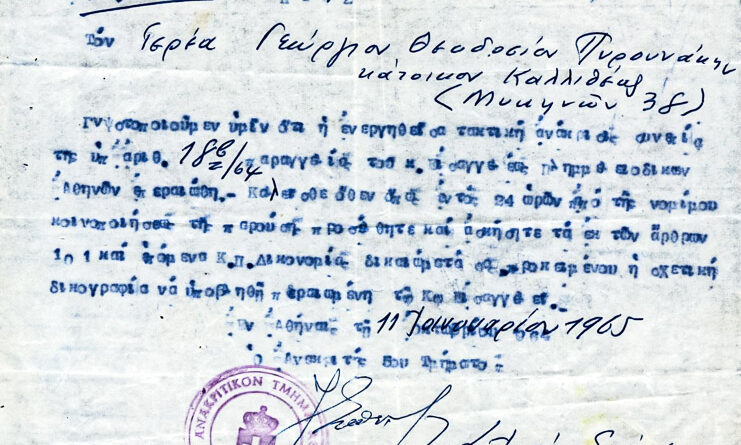 Τόν Ἱερέα Γεώργιον Θεοδοσίου Πυρουνάκην
κάτοικον Καλλιθέας
(Μυκηνῶν 38)
Γνωστοποιοῦμεν ὑμῖν ὅτι ἡ ἐνεργηθεῖσα τακτική ἀνάκρισις συνεπείᾳ
τῆς ὑπ' ἀριθ. 18β/64 παραγγελίας τοῦ κ. Εἰσαγγελέως Πλημμελειοδικῶν
Ἀθηνῶν ἐπεραιώθη.- Καλεῖσθε ὅθεν ὅπως ἐντός 24 ὡρῶν ἀπό τῆς νομίμου
κοινοποιήσεως τῆς παρούσης προσέλθητε καί ἀσκήσητε τά ἐκ τῶν ἄρθρων
101 καί ἑπόμενα Κ.Π.Δικονομίας δικαιώματά σας προκειμένου ἡ σχετική
δικογραφία νά ὑποβληθῇ περαιωμένη τῷ Κῳ Εἰσαγγελεῖ.-
Ἐν Ἀθήναις τῇ 11 Ἰανουαρίου 1965
Ὁ Ἀνακριτής 5ου Τμήματος
ΑΝΑΚΡΙΤΙΚΟΝ ΤΜΗΜΑ